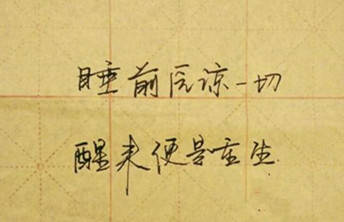 睡前原谅一切
醒来便是重生